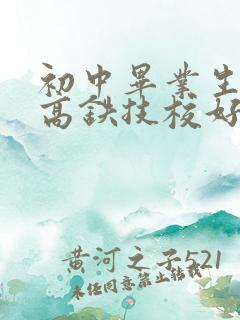 初中畢業生
高鉄技校好
黄河之子521
未任同意禁止转载